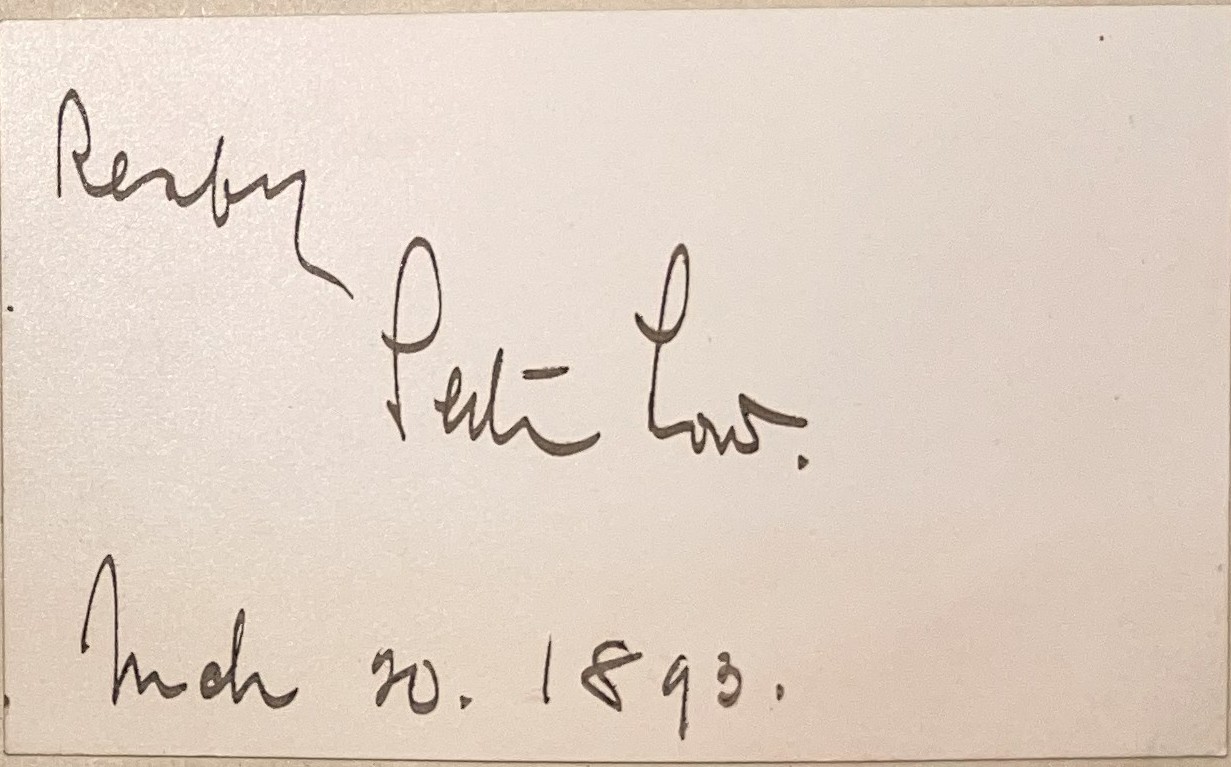 Respy
Seth Low.
Mch 20. 1893.